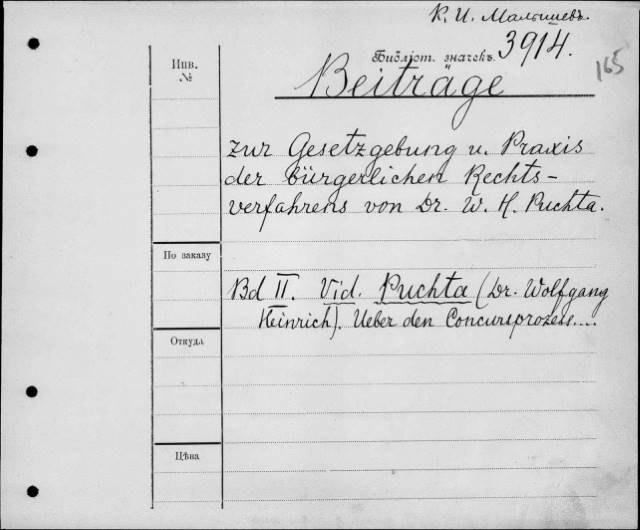 К. И. Малышевъ.
Библіот. значекъ. 3914.
165
Инв.
№
Beiträge
zur Gesetzgebung u. Praxis
der bürgerlichen Rechts-
verfahrens von Dr. W. H. Puchta.
По заказу
Bd II. Vid. Puchta (Dr. Wolfgang
Heinrich). Ueber den Concursprozess....
Откуда
Цѣна